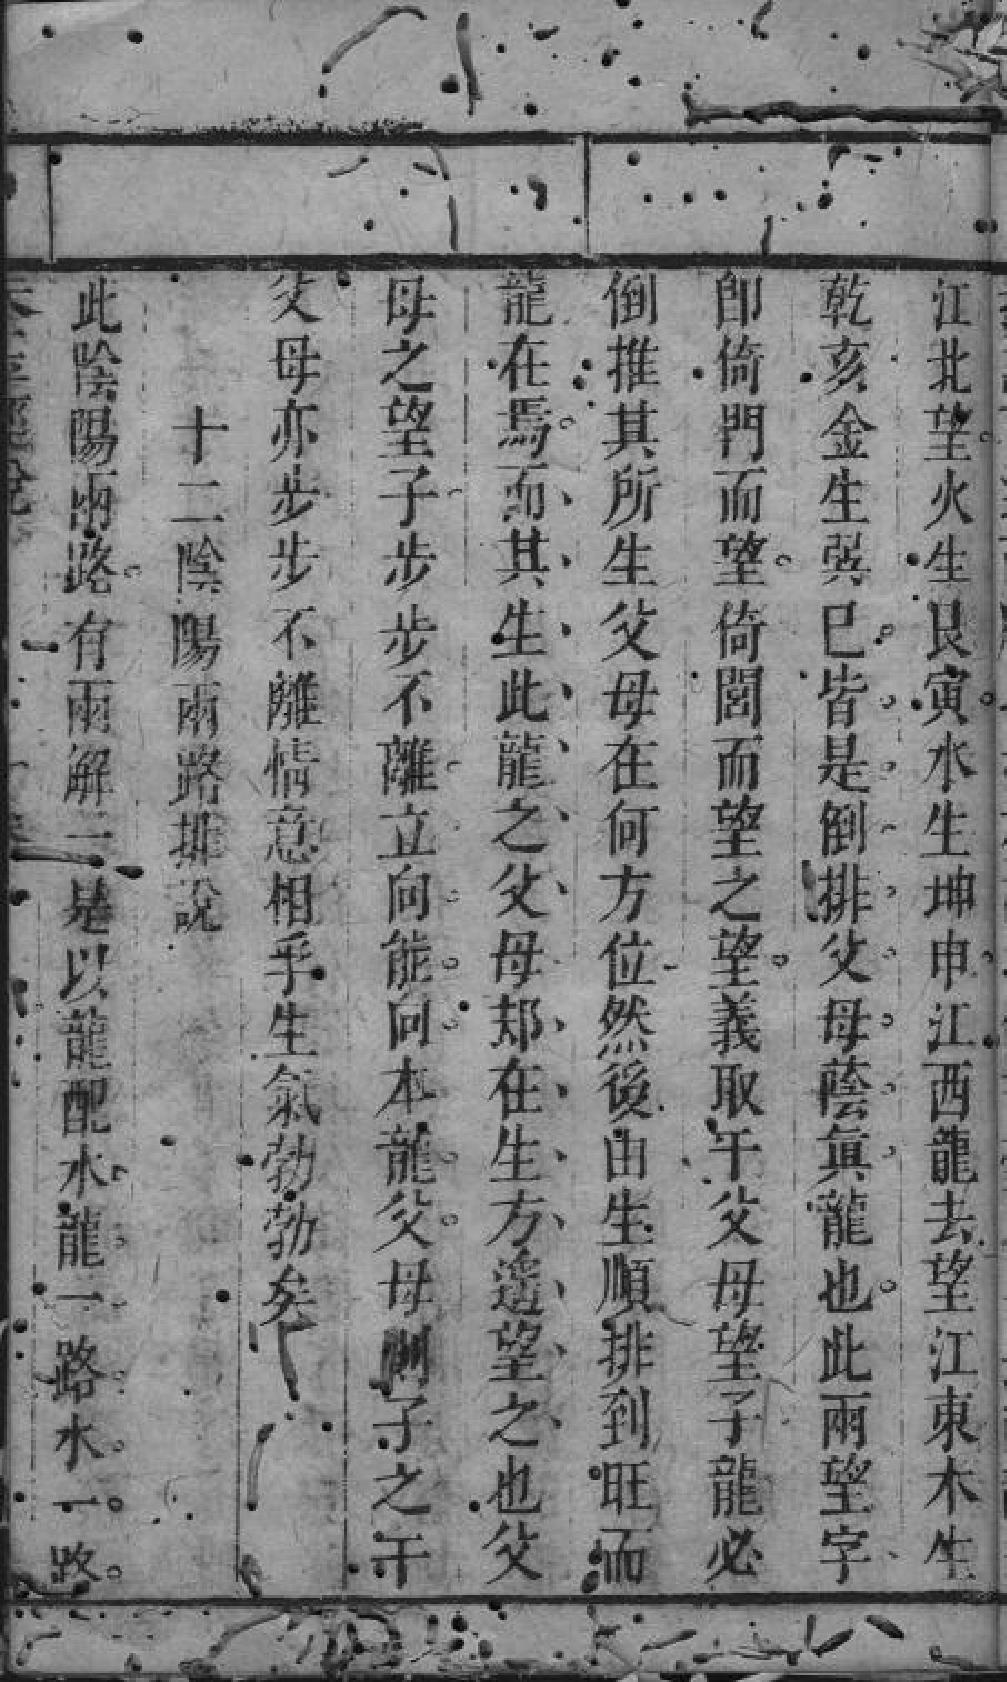 江北望火生艮寅水生坤申江西龍去望江東木生
乾亥金生巽巳皆是倒排父母蔭眞龍也此兩望字
卽倚門而望倚閭而望之望義取乎父母望子龍必
倒推其所生父母在何方位然後由生順排到旺而
龍在焉而其生此龍之父母却在生方遙望之也父
母之望子步步不離立向能向本龍父母則子之于
父母亦步步不離情意相乎生氣勃勃矣
十二陰陽兩路排說
此陰陽兩路有兩解一是以龍配水龍一路水一路